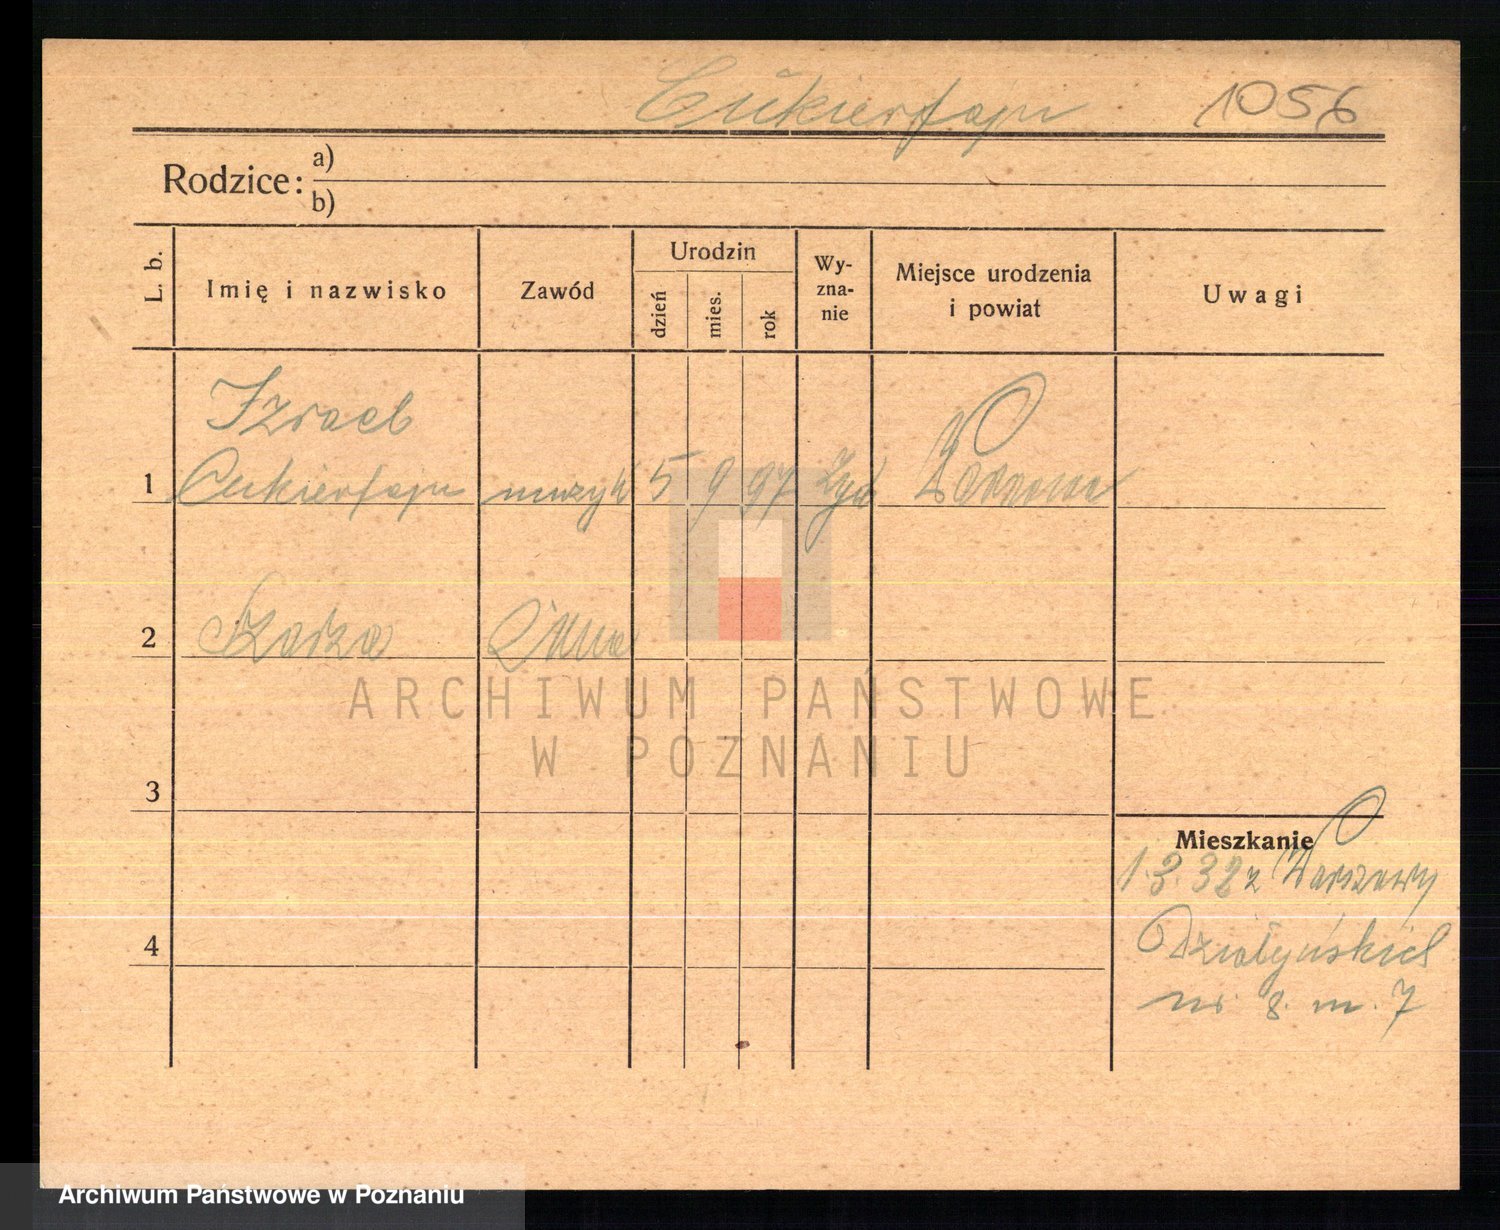 Cukierfajn 1056
Rodzice:
a)
b)
L. b. Imię i nazwisko Zawód Urodzin dzień mies. rok Wy-zna-nie Miejsce urodzenia i powiat Uwagi
Izrael
1 Cukierfajn muzyk 5 9 97 Żyd
2
3
4
Mieszkanie
1.3.32 z Warszawy
Działyńskich
nr. 8. m. 7
ARCHIWUM PAŃSTWOWE
W POZNANIU
Archiwum Państwowe w Poznaniu